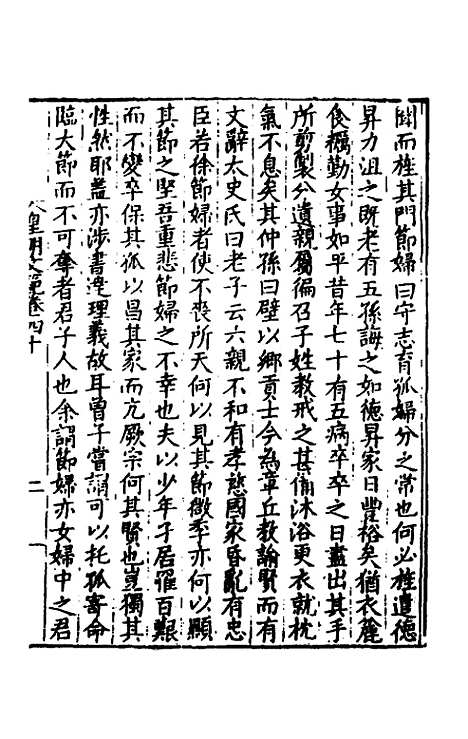 聞而旌其門節婦曰守志育孤婦分之常也何必旌遣德
昇力沮之既老有五孫誨之如德昇家日豐裕矣猶衣麤
食糲勤女事如平昔年七十有五病卒卒之日盡出其手
所剪製分遺親屬徧召子姓教戒之甚備沐浴更衣就枕
氣不息矣其仲孫曰璧以鄉貢士今為章丘教諭賢而有
文辭太史氏曰老子云六親不和有孝慈國家昏亂有忠
臣若徐節婦者使不喪所天何以見其節微季亦何以顯
其節之堅吾重悲節婦之不幸也夫以少年孑居罹百艱
而不變卒保其孤以昌其家而亢厥宗何其賢也豈獨其
性然耶蓋亦涉書達理義故耳曾子嘗謂可以托孤寄命
臨大節而不可奪者君子人也余謂節婦亦女婦中之君
皇明文範卷四十
二